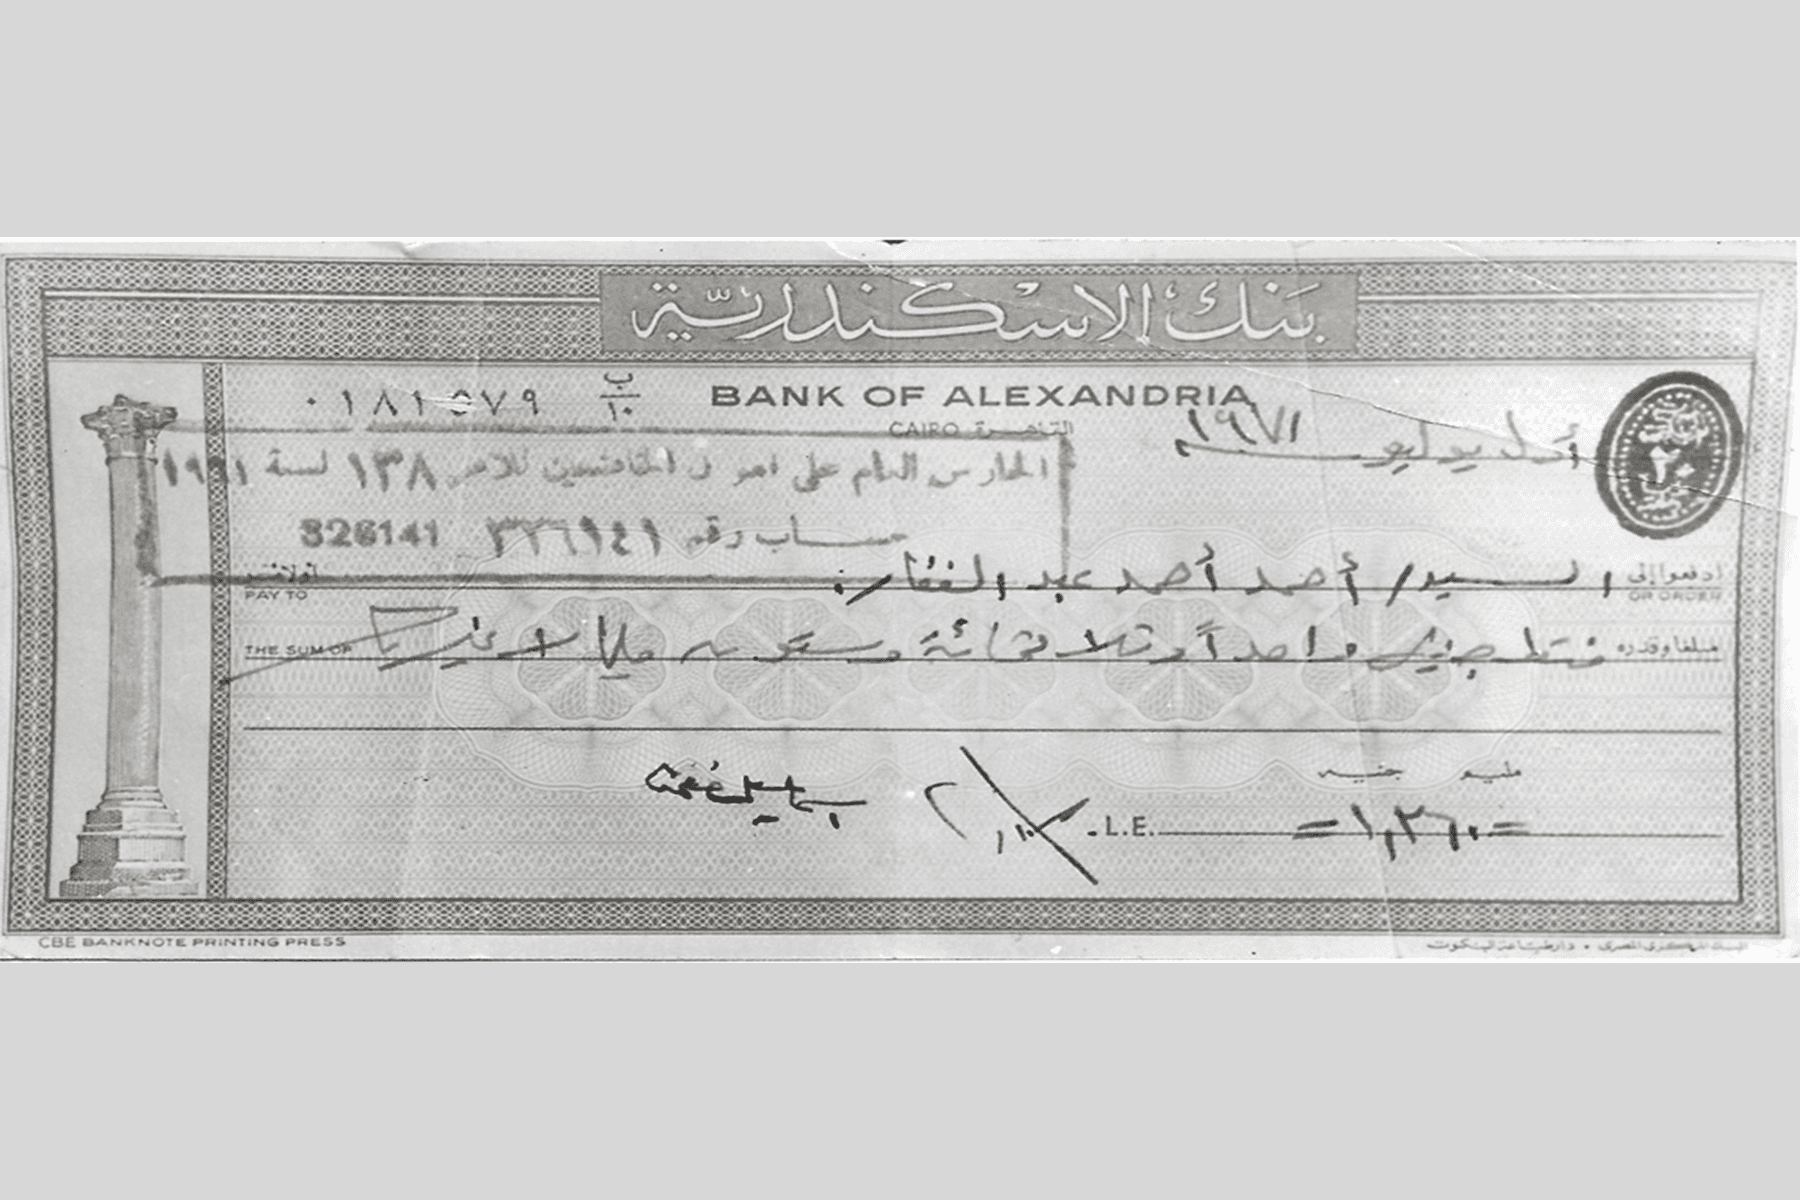 بنك الإسكندرية
٠١٨١٥٧٩ ب/١٠
BANK OF ALEXANDRIA
CAIRO القاهرة
أول يوليو ١٩٧١
الحارس العام على أموال الخاضعين للأمر ١٣٨ لسنة ١٩٦١
حساب رقم ٣٢٦١٤١ 326141
ادفعوا إلى السيد/ أحمد أحمد عبد الغفار
PAY TO OR ORDER
مبلغا وقدره فقط جنيها واحداً وثلاثمائة وستون مليما لا غير
THE SUM OF
مليم جنيه
L.E. =١,٣٦٠=
CBE BANKNOTE PRINTING PRESS
البنك المركزى المصرى • دار طباعة البنكنوت